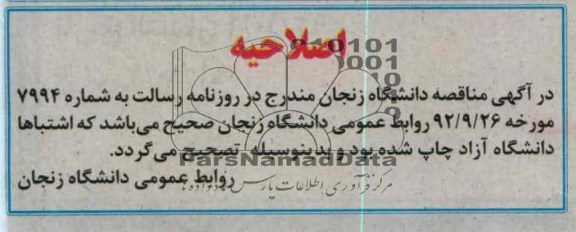 اصلاحیه
در آگهی مناقصه دانشگاه زنجان مندرج در روزنامه رسالت به شماره ۷۹۹۴
مورخه ۹۲/۹/۲۶ روابط عمومی دانشگاه زنجان صحیح می‌باشد که اشتباها
دانشگاه آزاد چاپ شده بود و بدینوسیله تصحیح می‌گردد.
ParsNamadData
روابط عمومی دانشگاه زنجان
مرکز فرآوری اطلاعات پارس نماد داده ها